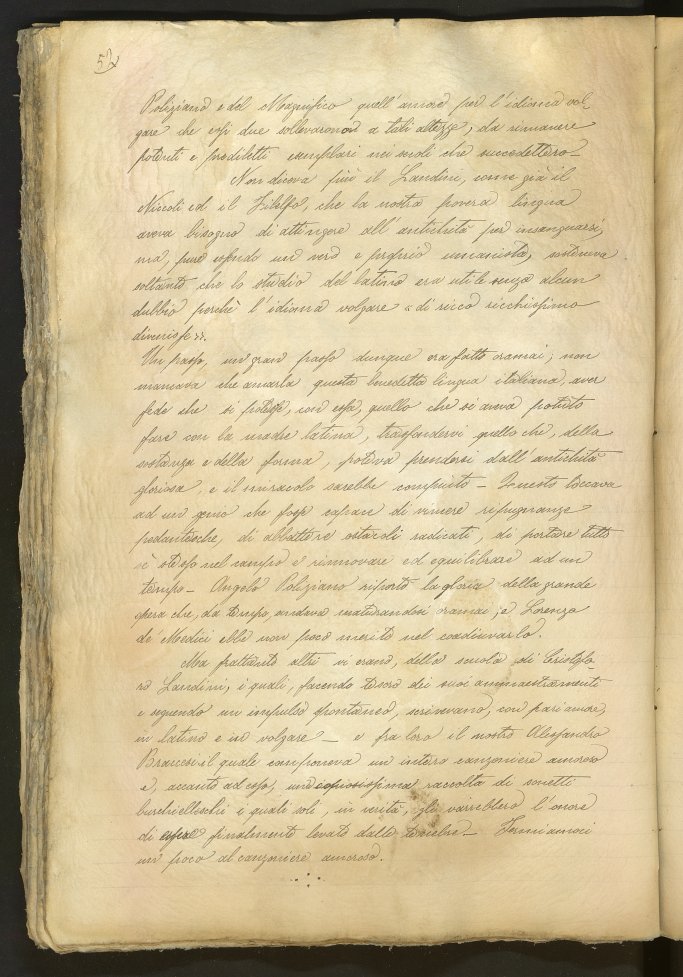 52
Poliziano e del Magnifico quell'amore per l'idioma vol-
gare che essi due sollevarono a tali altezze, da rimanere
potenti e prediletti esemplari nei secoli che succedettero—
Non diceva più il Landini, come già il
Niccoli ed il Filelfo, che la nostra povera lingua
aveva bisogno di attingere all'antichità per insanguarsi,
ma, pure essendo un vero e proprio umanista, sosteneva
soltanto che lo studio del latino era utile senza alcun
dubbio perchè l'idioma volgare « di ricco ricchissimo
divenisse ».
Un passo, un gran passo dunque era fatto oramai; non
mancava che amarla questa benedetta lingua italiana, aver
fede che si potesse, con essa, quello che si aveva potuto
fare con la madre latina, trasfondervi quello che, della
sostanza e della forma, poteva prendersi dall'antichità
gloriosa, e il miracolo sarebbe compiuto — Questo toccava
ad un genio che fosse capace di vincere ripugnanze
pedantesche, di abbattere ostacoli radicati, di portare tutto
sè stesso nel campo e rinnovare ed equilibrare ad un
tempo — Angelo Poliziano riportò la gloria della grande
opera che, da tempo, andava maturandosi oramai; e Lorenzo
de' Medici ebbe non poco merito nel coadiuvarlo.
Ma frattanto altri vi erano, della scuola di Cristofo-
ro Landini, i quali, facendo tesoro dei suoi ammaestramenti
e seguendo un impulso spontaneo, scrivevano, con pari amore,
in latino e in volgare — e fra loro il nostro Alessandro
Braccesi il quale componeva un intero canzoniere amoroso
e, accanto ad esso, una copiosissima raccolta di sonetti
burchielleschi i quali soli, in verità, gli varrebbero l'onore
di essere finalmente levato dalle tenebre — Fermiamoci
un poco al canzoniere amoroso.